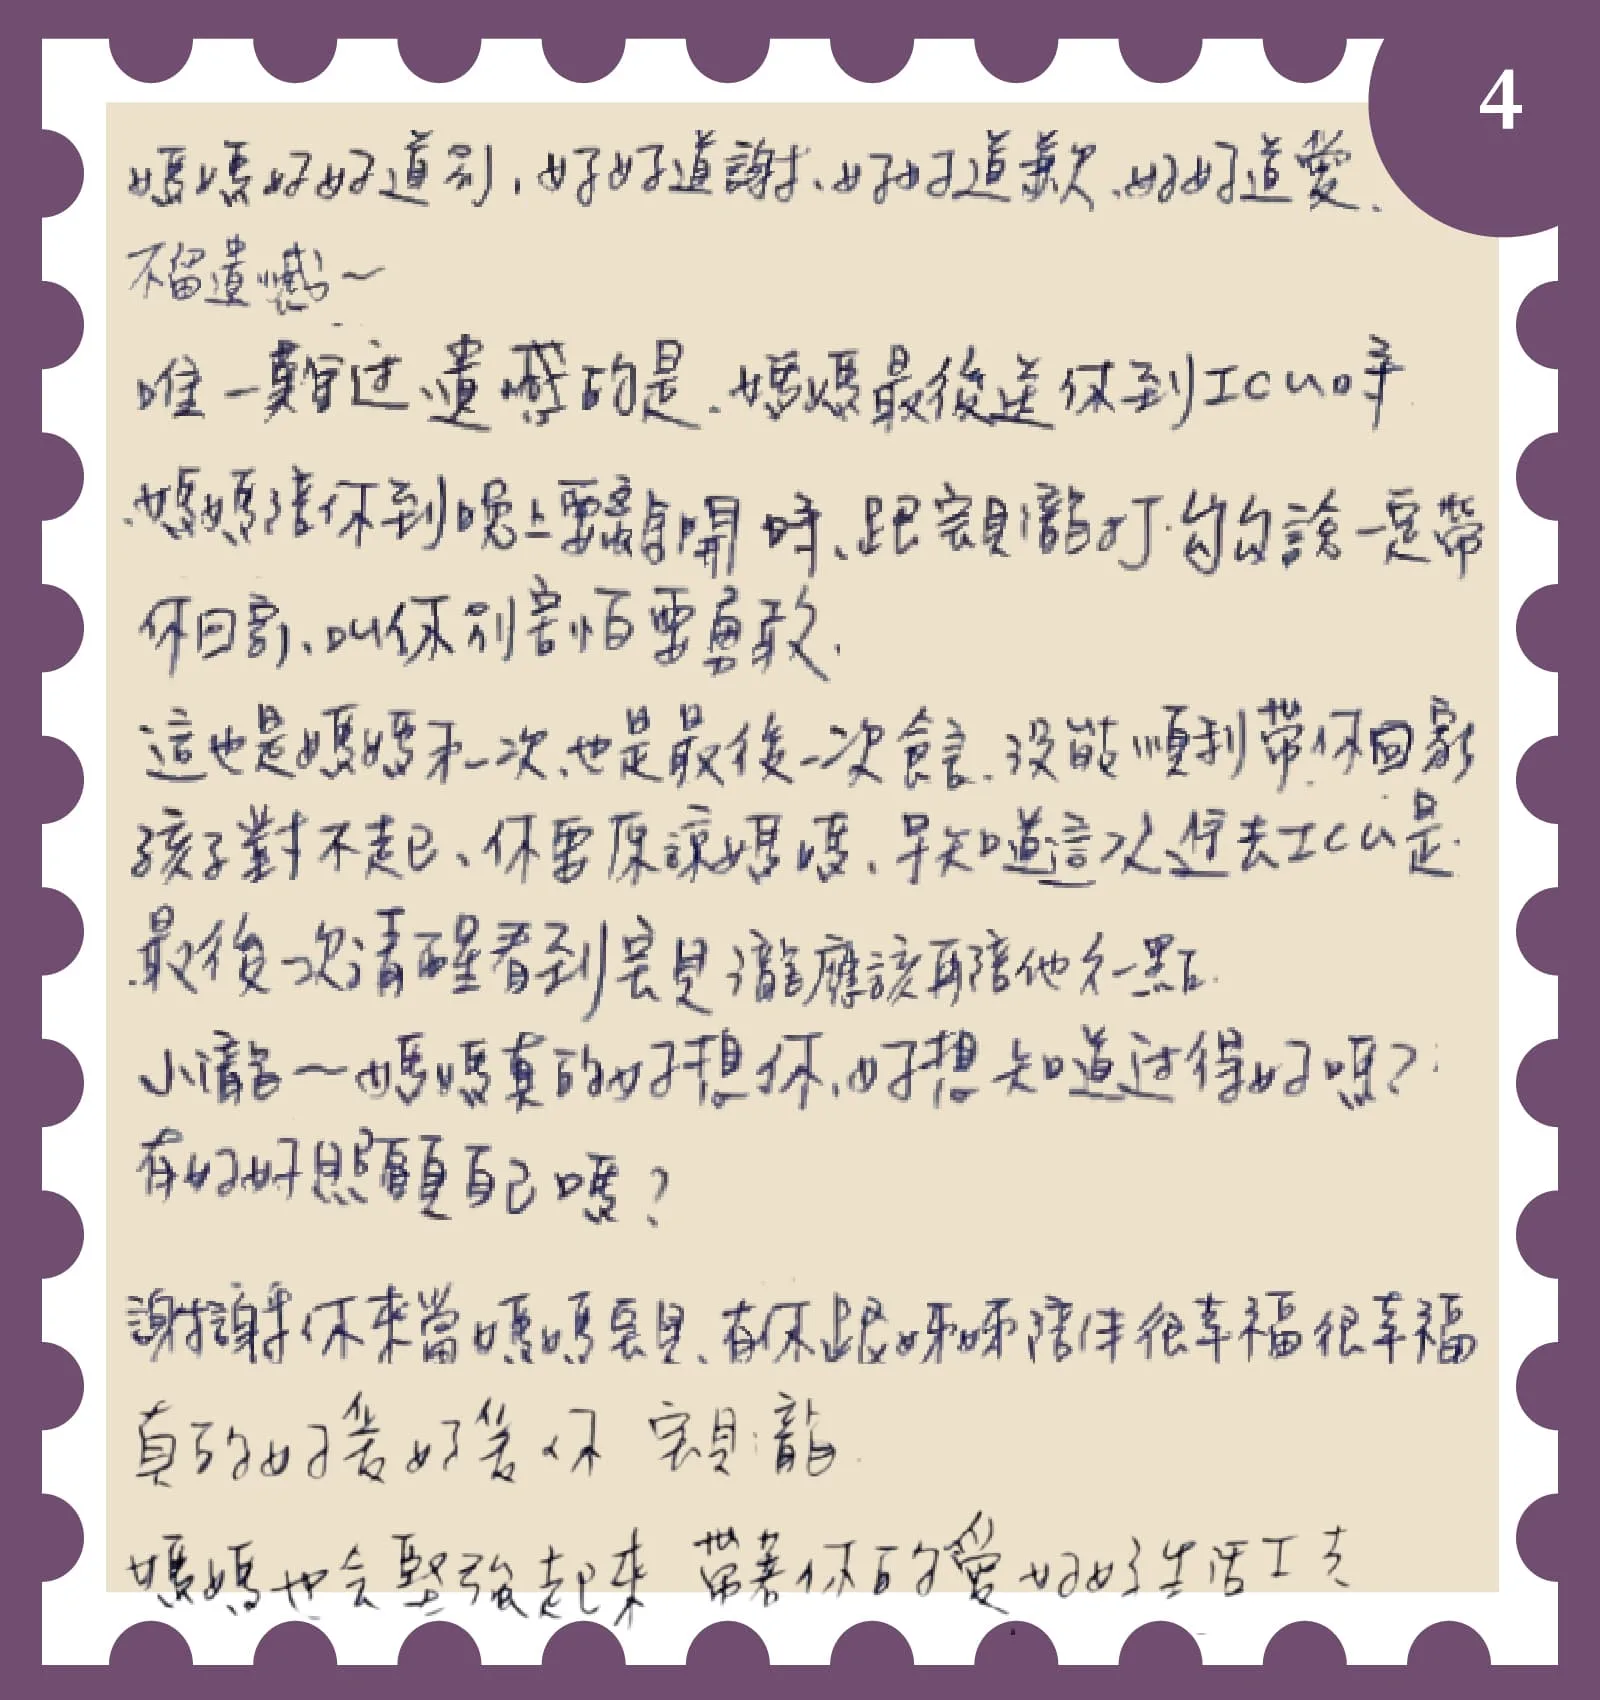 4
媽媽好好道別，好好道謝、好好道歉、好好道愛、
不留遺憾～
唯一難過、遺憾的是、媽媽最後送你到ICU時
媽媽陪你到晚上要離開時、跟寶貝瀧打勾勾說一定帶
你回家、叫你別害怕要勇敢、
這也是媽媽第一次、也是最後一次食言、沒能順利帶你回家
孩子對不起、你要原諒媽媽、早知道這次進去ICU是
最後一次清醒看到寶貝瀧應該再陪他久一點、
小瀧～媽媽真的好想你、好想知道過得好嗎？
有好好照顧自己嗎？
謝謝你來當媽媽寶貝、有你跟姊姊陪伴很幸福很幸福
真的好愛好愛你 寶貝瀧
媽媽也会堅強起來 帶著你的愛好好生活下去